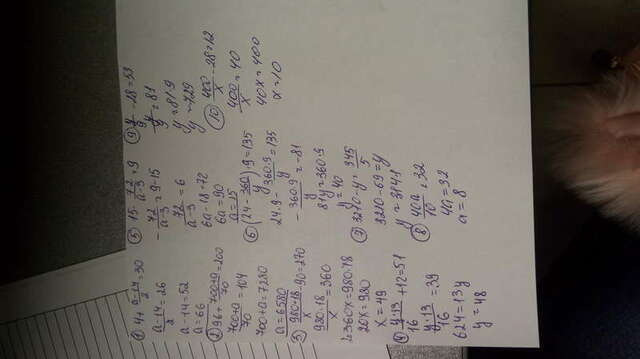 ① 4+ (a-14)/2 = 30
(a-14)/2 = 26
a-14=52
a=66
② 96+ (700+a)/70 = 200
(700+a)/70 = 104
700+a=7280
a=6580
③ (980·18)/x - 90=270
(980·18)/x = 360
360x=980·18
20x=980
x=49
④ (y·13)/16 +12=51
(y·13)/16 = 39
624=13y
y=48
⑤ 15- 72/(a-3) = 9
- 72/(a-3) = 9-15
72/(a-3) = 6
6a-18=72
6a=90
a=15
⑥ (24- 360/y) 9=135
24·9- (360·9)/y = 135
- (360·9)/y = -81
81y=360·9
y=40
⑦ 3210-y= 345/5
3210-69=y
y=3141
⑧ 40a/10 = 32
4a=32
a=8
⑨ y/9 -28=53
y/9 = 81
y=81·9
y=729
⑩ 400/x -28=12
400/x = 40
40x=400
x=10